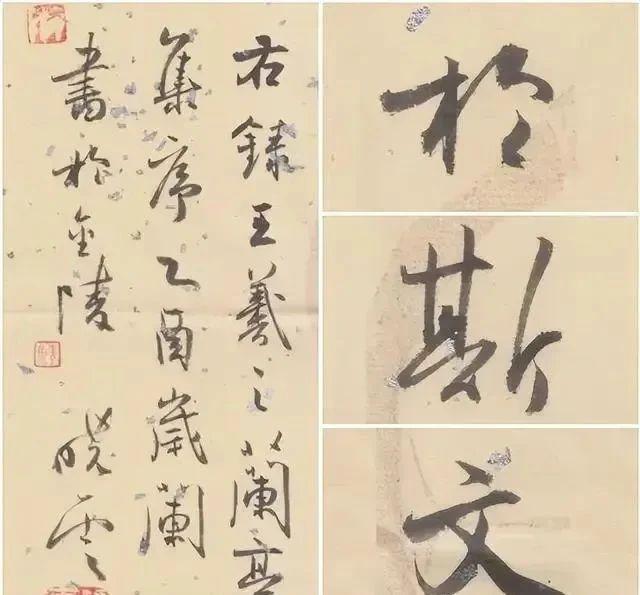 右錄王羲之蘭亭
集序乙酉歲蘭
書於金陵
曉雲
於
斯
文